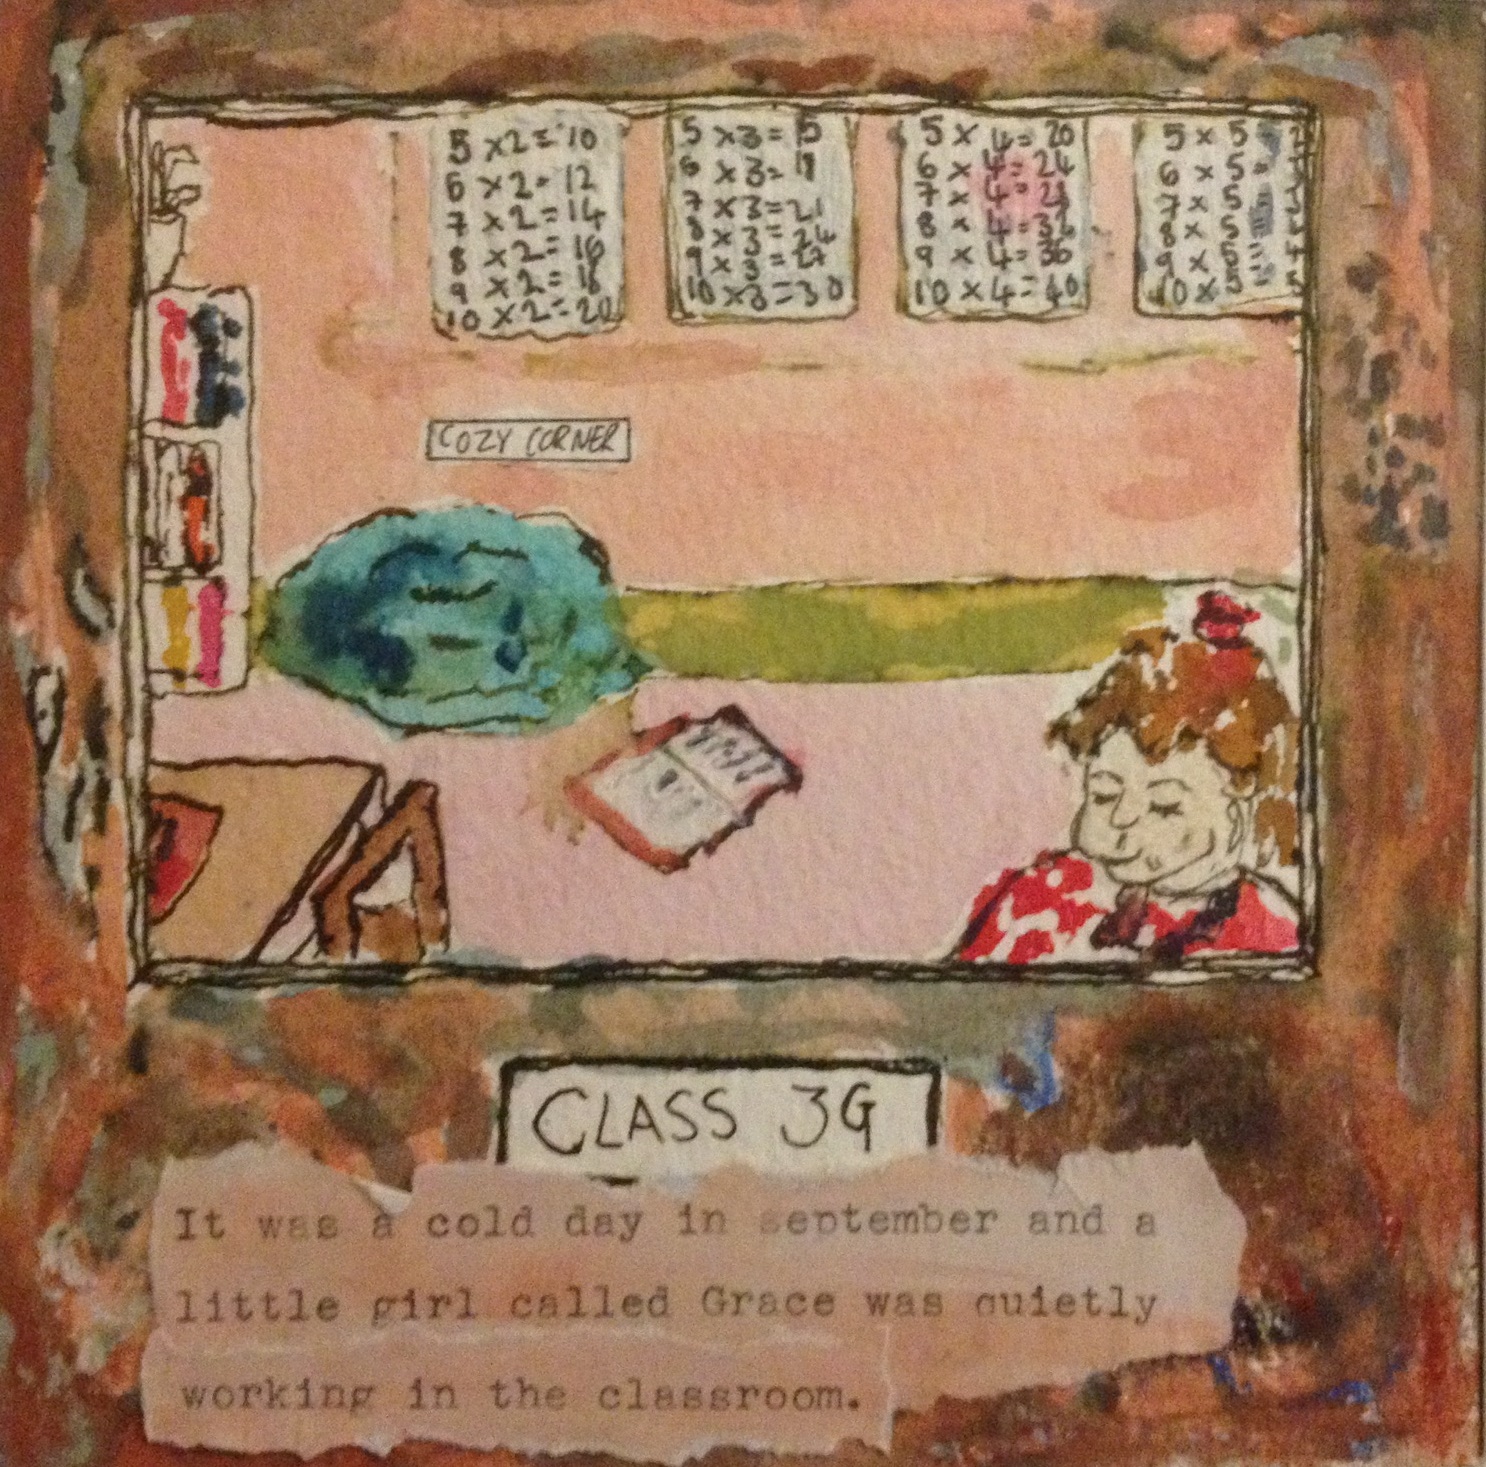 5 x 2 = 10
6 x 2 = 12
7 x 2 = 14
8 x 2 = 16
9 x 2 = 18
10 x 2 = 20
5 x 3 = 15
6 x 3 =
7 x 3 = 21
8 x 3 = 24
9 x 3 = 27
10 x 3 = 30
5 x 4 = 20
6 x 4 = 24
7 x 4 =
8 x 4 = 32
9 x 4 = 36
10 x 4 = 40
5 x 5
6 x 5 =
7 x 5
8 x 5
9 x 5 =
10 x 5 =
COZY CORNER
CLASS 3G
It was a cold day in september and a
little girl called Grace was quietly
working in the classroom.